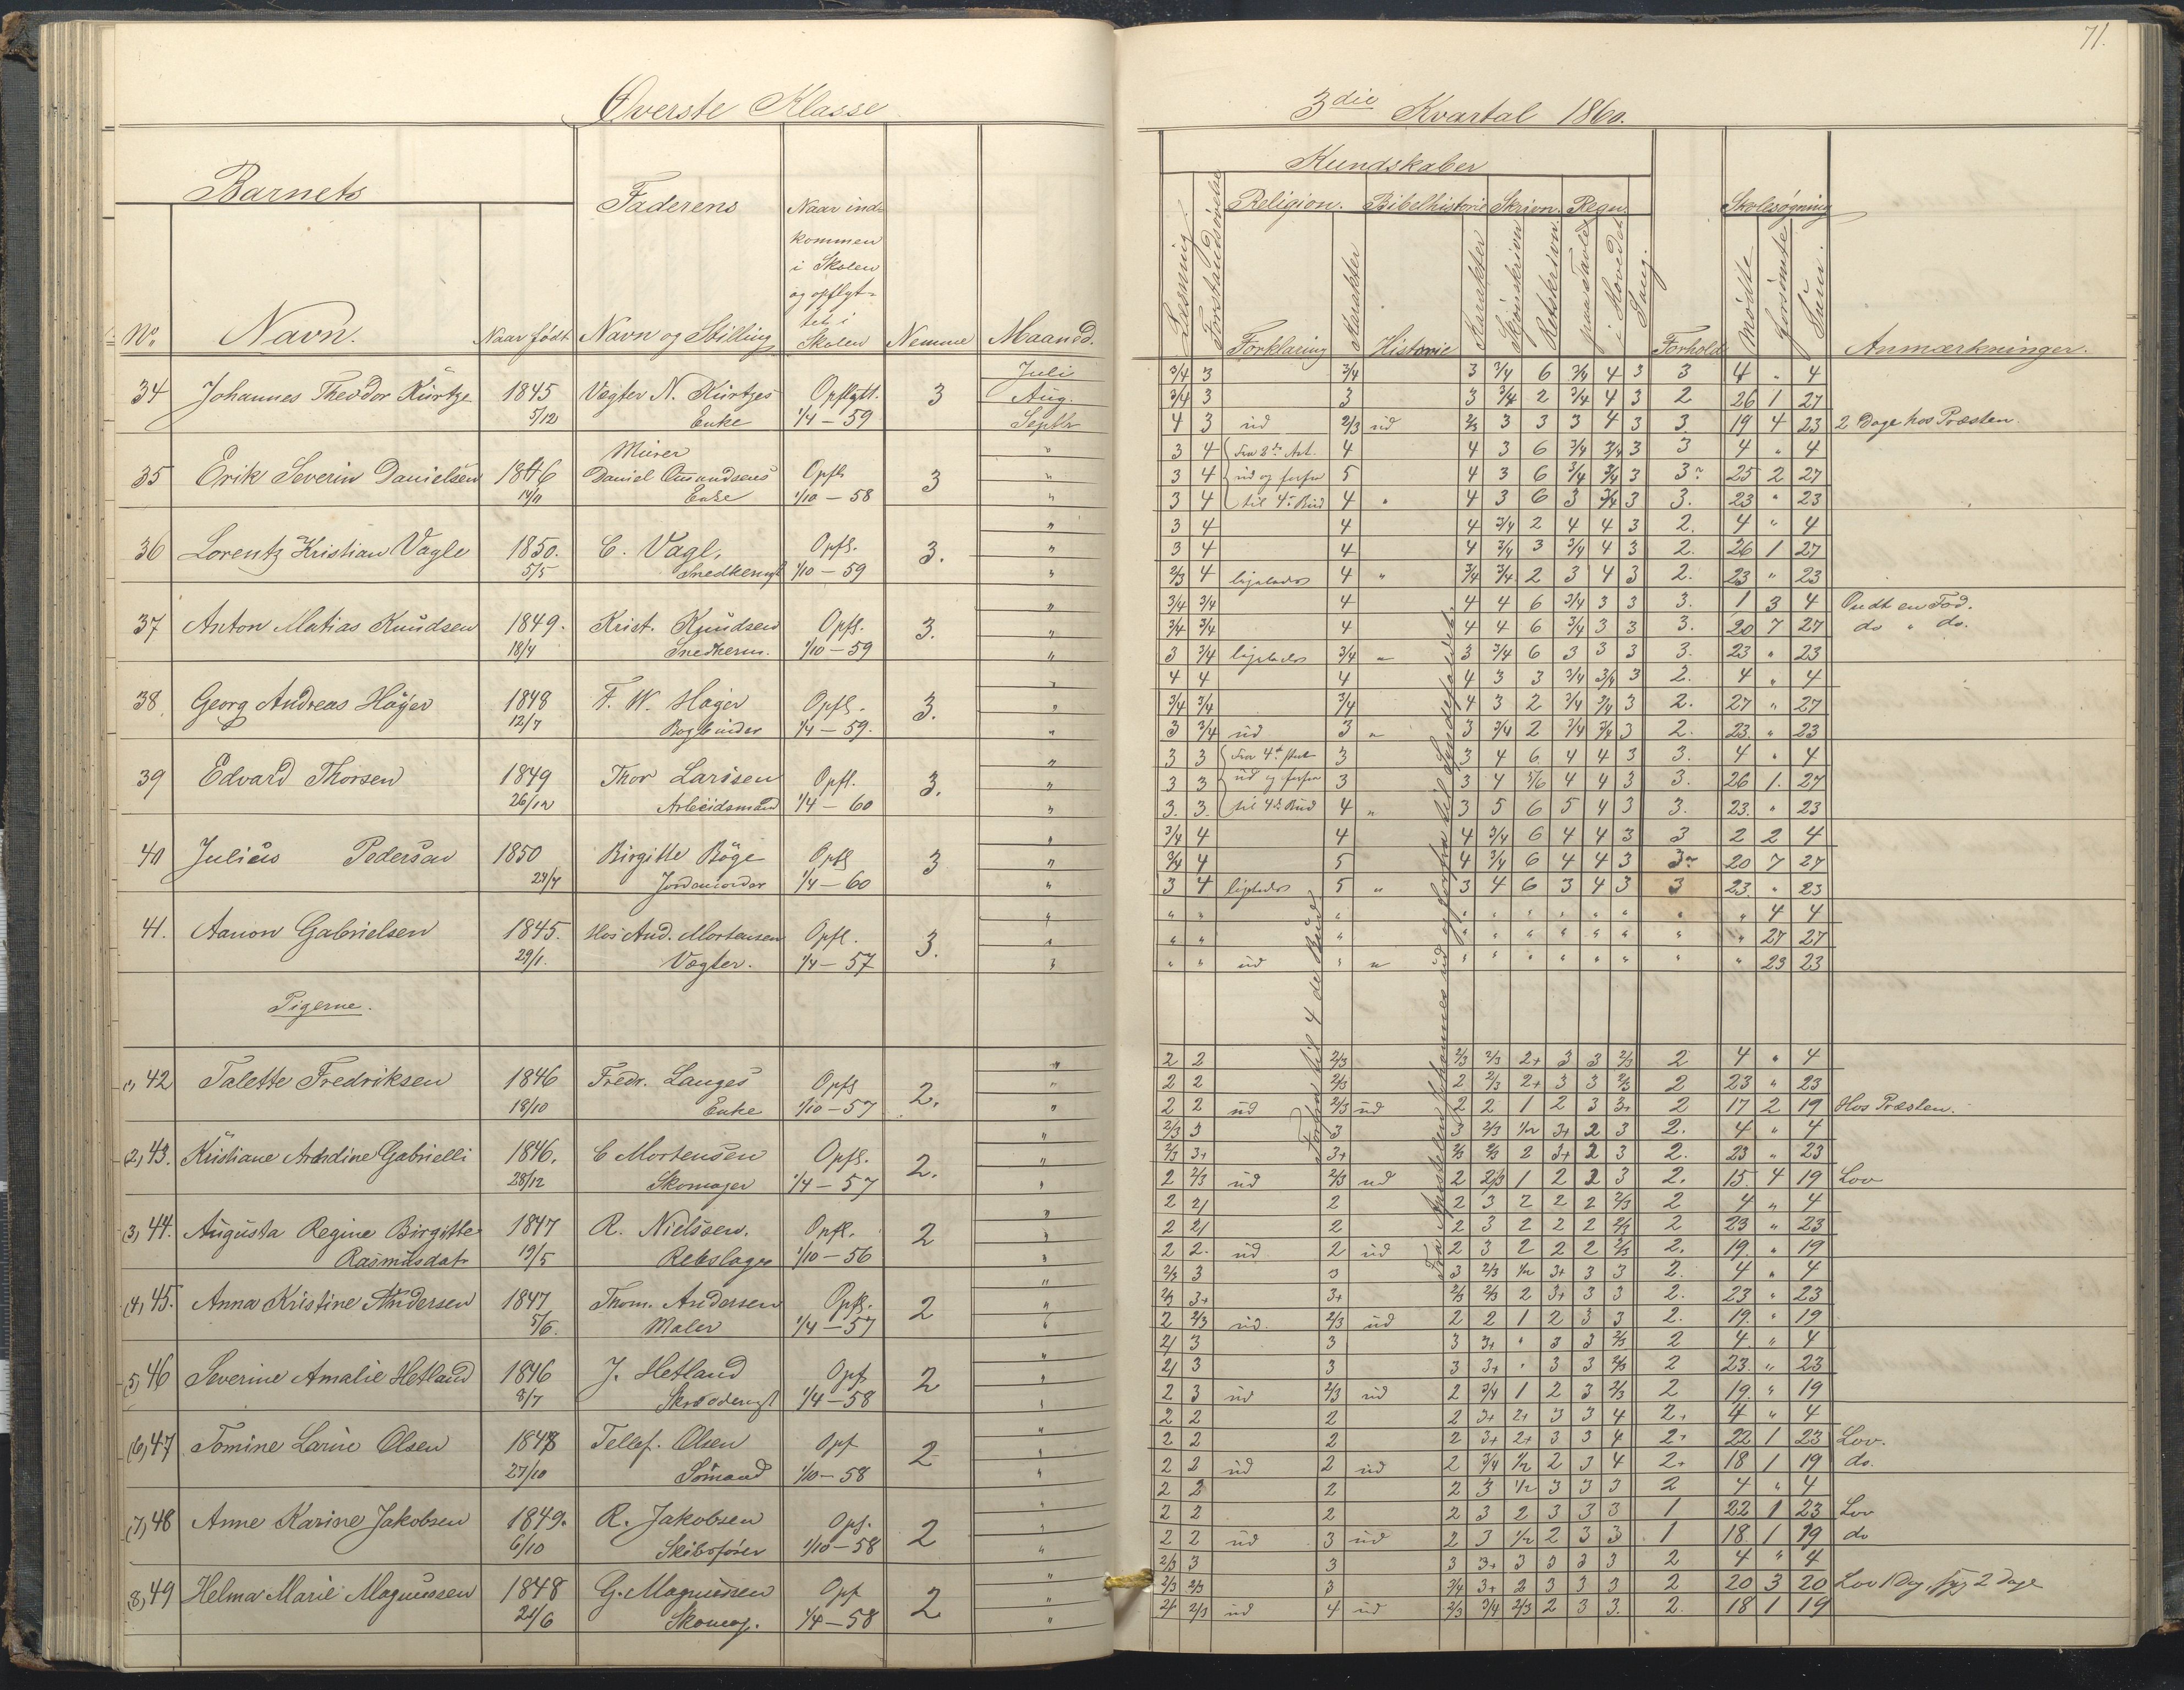 71.
Øverste Klasse
3die Kvartal 1860.
Barnets
Faderens
Naar ind-
kommen
i Skolen
og opflyt-
tet i
Skolen
No
Navn.
Naar født
Navn og Stilling
Nemme
Maaned.
Kundskaber
Læsning
Forstandsøvelse
Religion.
Bibelhistorie
Skrivn.
Regn.
Forklaring
Karakter
Historie
Karakter
Skjønskrivn
Retskrivn
paa Tavle
i Hovedet
Sang.
Forhold
Skolesøgning
Mødte
Forsømte
Sum.
Anmærkninger.
34 Johannes Theodor Kürtze 1845 5/12 Vægter N. Kürtzes Enke Opflytt. 1/4 — 59 3
Juli 3/4 3 3/4 3 3/4 6 3/4 4 3 3 4 " 4
Aug. 3/4 3 3 3 3/4 2 3/4 4 3 2 26 1 27
Septbr 4 3 ud 2/3 ud 2/3 3 3 3 4 3 3 19 4 23 2 Dage hos Præsten.
35 Erik Severin Danielsen 1846 14/11 Murer Daniel Omundsens Enke Opfl. 1/10 — 58 3
" 3 4 Fra 2den Art. 4 4 3 6 3/4 3/4 3 3 4 " 4
" 3 4 ud og forfra 5 4 3 6 3/4 3/4 3 3 25 2 27
" 3 4 til 4de Bud 4 " 4 3 6 3 3/4 3 3. 23 " 23
36 Lorentz Kristian Vagle 1850. 5/5 C. Vagl. Snedkersv. Opfl. 1/10 — 59 3.
" 3 4 4 4 3/4 2 4 4 3 2. 4 " 4
" 3 4 4 4 3/4 3 3/4 4 3 2. 26 1 27
" 2/3 4 ligeledes 4 " 3/4 3/4 2 3 4 3 2. 23 " 23
37 Anton Matias Knudsen 1849. 18/4 Krist. Knudsen Snedkersv. Opfl. 1/10 — 59 3.
" 3/4 3/4 4 4 4 6 3/4 3 3 3. 1 3 4 Ondt en Fod.
" 3/4 3/4 4 4 4 6 3/4 3 3 3. 20 7 27 do " do.
" 3 3/4 ligeledes 3/4 " 3 3/4 6 3 3 3 3. 23 " 23
38 Georg Andreas Høyer 1848 12/7 F. W. Høyer Bogbinder Opfl. 1/4 — 59. 3.
" 4 4 4 4 3 3 3/4 3/4 3 2. 4 " 4
" 3/4 3/4 3/4 4 3 2 3/4 3/4 3 2. 27 " 27
" 3 3/4 ud 3 " 3 3/4 2 3/4 3/4 3 2. 23. " 23
39 Edvard Thorsen 1849 26/12 Thor Larssen Arbeidsmand Opfl. 1/4 — 60 3.
" 3 3 Fra 4de Part 3 3 4 6 4 4 3 3. 4 " 4
" 3 3 ud og forfra 3 3 4 5/6 4 4 3 3. 26 1. 27
" 3. 3. til 4de Bud 4 " 3 5 6 5 4 3 3. 23. " 23
40 Julius Pedersen 1850 24/7 Birgitte Bøge Jordemoder Opfl 1/4 — 60 3
" 3/4 4 4 4 3/4 6 4 4 3 3 2 2 4
" 3/4 4 5 4 3/4 6 4 4 3 3 20 7 27
" 3 4 ligeledes 5 " 3 4 6 3 4 3 3 23. " 23
41. Aanon Gabrielsen 1845. 29/1. Hos And. Mortensen Vægter. Opfl. 1/4 — 57 3.
" " " " " " " " " " " " 4 4
" " " " " " " " " " " " 27 27
" " " ud " " " " " " " " " " 23 23
Pigerne.
Forfra til 4de Bud
Fra Apostelen Johannes ud og forfra til Syndefaldet.
1) 42 Talette Fredriksen 1846 18/10 Fredr. Langes Enke Opfl 1/10 — 57 2.
" 2 2 2/3 2/3 2/3 2+ 3 3 2/3 2 4 " 4
" 2 2 2/3 2 2/3 2+ 3 3 2/3 2 23 " 23
" 2 2 ud 2/3 ud 2 2 1 2 3 3+ 2 17 2 19 Hos Præsten.
2) 43. Kristiane Arndine Gabrielli 1846. 28/12 C Mortensen Skomager Opfl. 1/4 — 57 2.
" 2/3 3 3 3 2/3 1/2 3+ 2 3 2. 4 " 4
" 2/3 3+ 3+ 2/3 2/3 2 3+ 2 3 2. 23 " 23
" 2 2/3 ud 2/3 ud 2 2/3 1 2 2 3 2. 15. 4 19 Lov
3) 44. Augusta Regine Birgitte Rasmusdatr 1847 19/5 R. Nielssen. Rebslager Opfl. 1/10 — 56 2
" 2 2/ 2 2 3 2 2 2 2/3 2 4 " 4
" 2 2/ 2 2 3 2 2 2 2/3 2 23 " 23
" 2 2. ud 2 ud 2 3 2 2 2 2/3 2. 19. " 19
4) 45. Anna Kristine Andersen 1847 5/6. Thom. Andersen Maler Opfl. 1/4 — 57 2
" 2/3 3 3 3 2/3 1/2 3+ 3 3 2. 4 " 4
" 2/3 3+ 3+ 2/3 2/3 2 3+ 3 3 2. 23 " 23
" 2 2/3 ud. 2/3 ud 2 2 1 2 3 3 2. 19. " 19
5) 46 Severine Amalie Hetland 1846 8/7 J. Hetland Skræddersv Opf 1/4 — 58 2
" 2/ 3 3 3 3+ " 3 3 2/3 2 4. " 4
" 2/ 3 3 3 3+ " 3 3 2/3 2 23. " 23
" 2 3 ud 2/3 ud 2 3/4 1 2 3 2/3 2 19. " 19
6) 47 Tomine Larine Olsen 1848 27/10 Tellef. Olsen Sømand Opf 1/10 — 58 2
" 2 2 2 2 3+ 2+ 3 3 4 2+ 4 " 4
" 2 2 2 2 3+ 2+ 3 3 4 2+ 22 1 23 Lov.
" 2 2 ud 2 ud 2 3/4 1/2 2 3 4 2+ 18 1 19 do.
7) 48 Anne Karine Jakobsen 1849. 6/10 R. Jakobsen Skibsfører Opf. 1/10 — 58 2
" 2 2 2 2 3 1/2 3 3 3 2 4 " 4
" 2 2 2 2 3 2 3 3 3 1 22 1 23 Lov
" 2 2 ud 3 ud 2 3 1/2 2 3 3 1 18. 1 19 do
8) 49 Helma Marie Magnussen 1848 24/6 G. Magnussen Skomag. Opf 1/4 — 58 2
" 2/3 3 3 3 3+ 3 3 3 3 2 4 " 4
" 2/3 2/3 3 3/4 3+ 2 3 3 3 2 20 3 20 Lov 1 Dag, syg 2 Dage
" 2/ 2/3 ud 4 ud 2/3 3/4 2/3 2 3 3. 2. 18 1 19